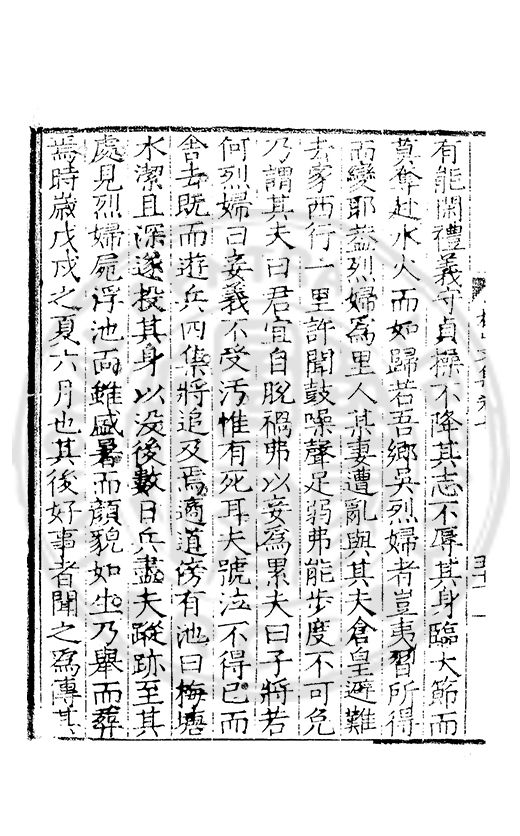 有能閑禮義守貞操不降其志不辱其身臨大節而
莫奪赴水火而如歸若吾鄉吳烈婦者豈夷習所得
而變耶葢烈婦爲里人某妻遭亂與其夫倉皇避難
去家西行一里許聞鼓噪聲足弱弗能步度不可免
乃謂其夫曰君宜自脫禍弗以妾爲累夫曰子將若
何烈婦曰妾義不受汚惟有死耳夫號泣不得已而
舍去旣而遊兵四集將追及焉適道傍有池曰梅塘
水潔且深遂投其身以没後數日兵盡夫蹤跡至其
處見烈婦屍浮池面雖盛暑而顏貌如生乃舉而葬
焉時嵗戊戌之夏六月也其後好事者聞之爲傳其